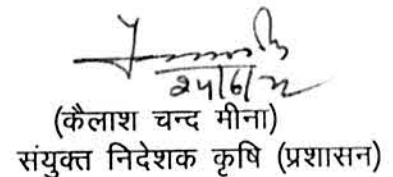 (कैलाश चन्द मीना)
संयुक्त निदेशक कृषि (प्रशासन)